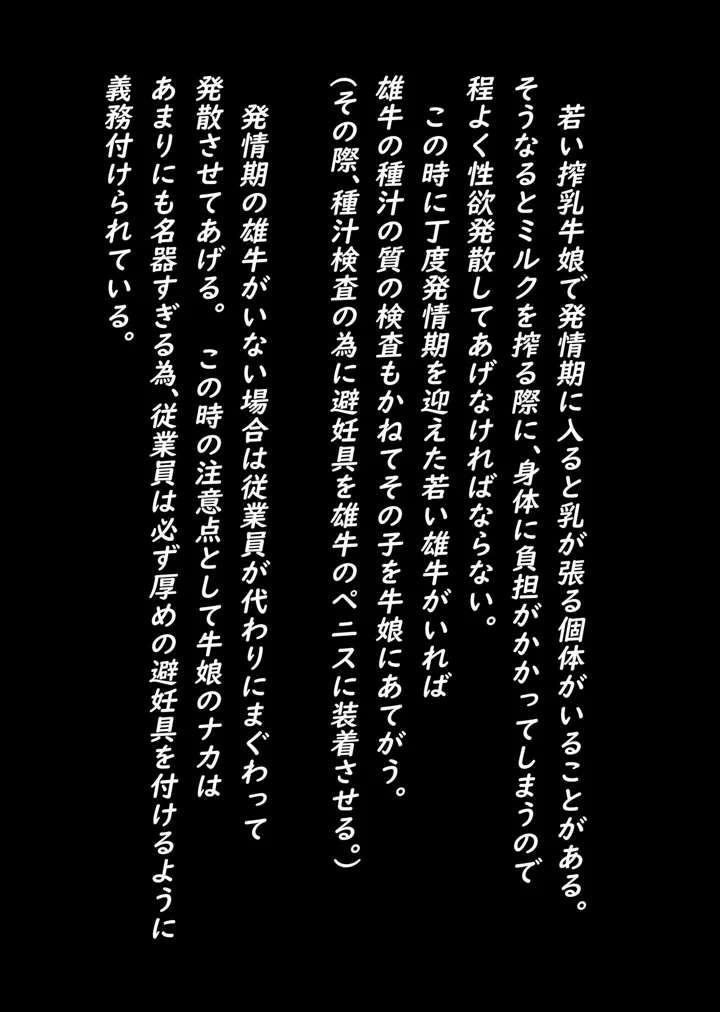 若い搾乳牛娘で発情期に入ると乳が張る個体がいることがある。
そうなるとミルクを搾る際に、身体に負担がかかってしまうので
程よく性欲発散してあげなければならない。
この時に丁度発情期を迎えた若い雄牛がいれば
雄牛の種汁の質の検査もかねてその子を牛娘にあてがう。
(その際、種汁検査の為に避妊具を雄牛のペニスに装着させる。)
発情期の雄牛がいない場合は従業員が代わりにまぐわって
発散させてあげる。 この時の注意点として牛娘のナカは
あまりにも名器すぎる為、従業員は必ず厚めの避妊具を付けるように
義務付けられている。